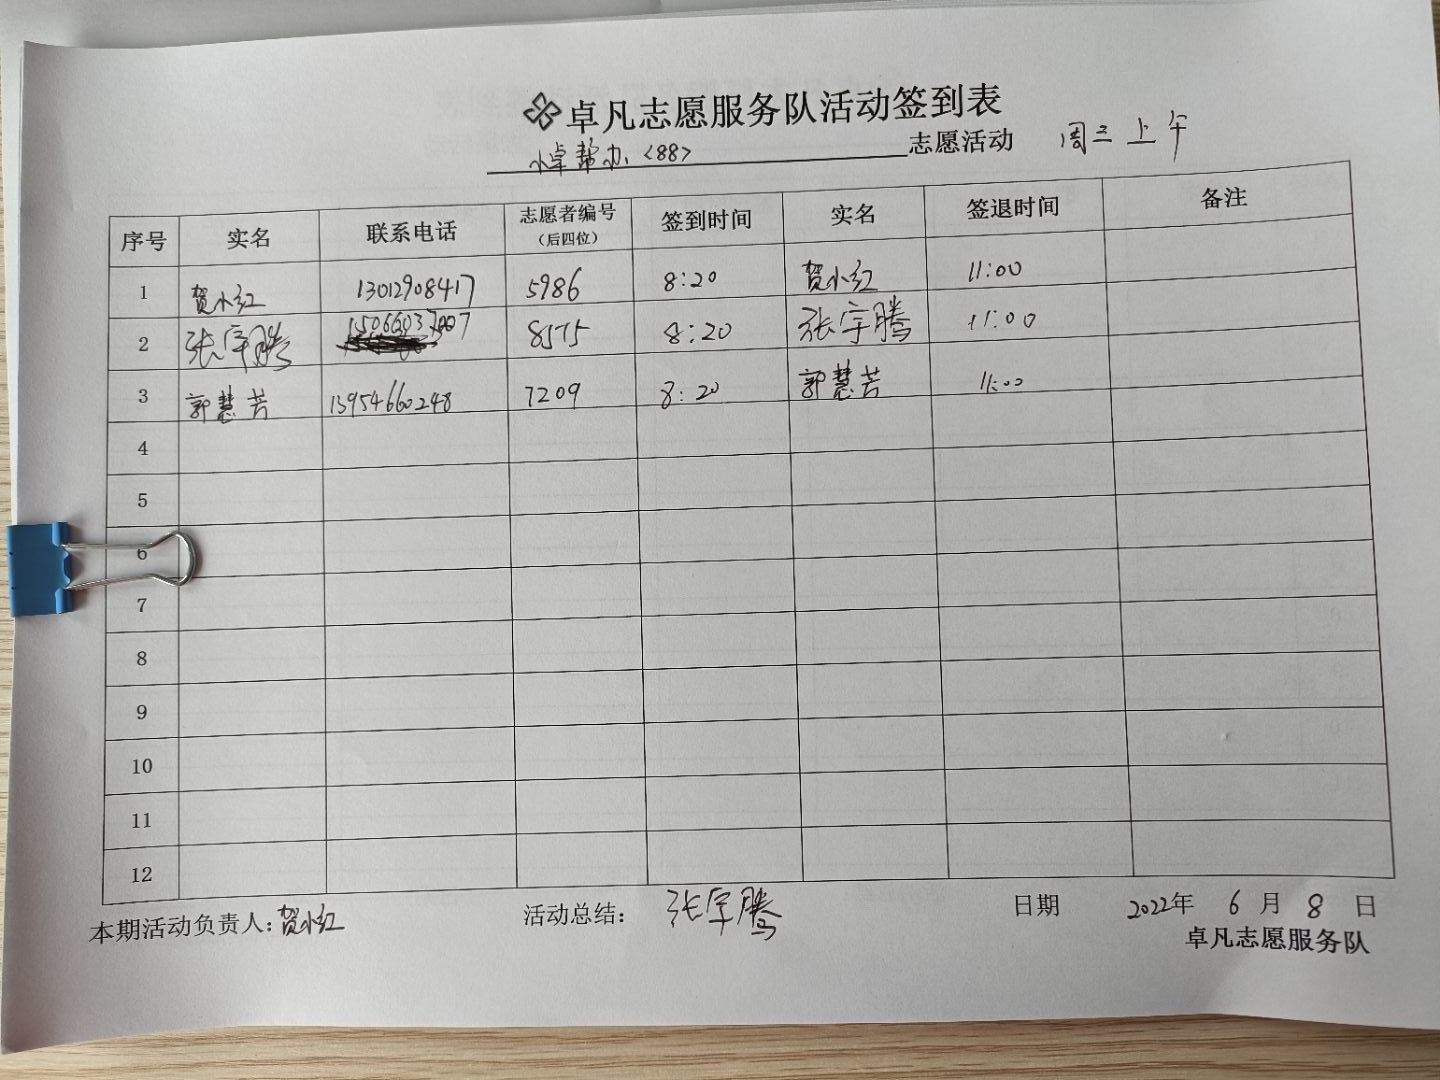 卓凡志愿服务队活动签到表
小卓帮办<88> 志愿活动 周三上午
序号 实名 联系电话 志愿者编号（后四位） 签到时间 实名 签退时间 备注
1 贺小红 13012908417 5986 8:20 贺小红 11:00
2 张宇腾 15066037007 8575 8:20 张宇腾 11:00
3 郭慧芳 13954660248 7209 8:20 郭慧芳 11:00
4
5
6
7
8
9
10
11
12
本期活动负责人:贺小红 活动总结: 张宇腾 日期 2022年 6 月 8 日
卓凡志愿服务队